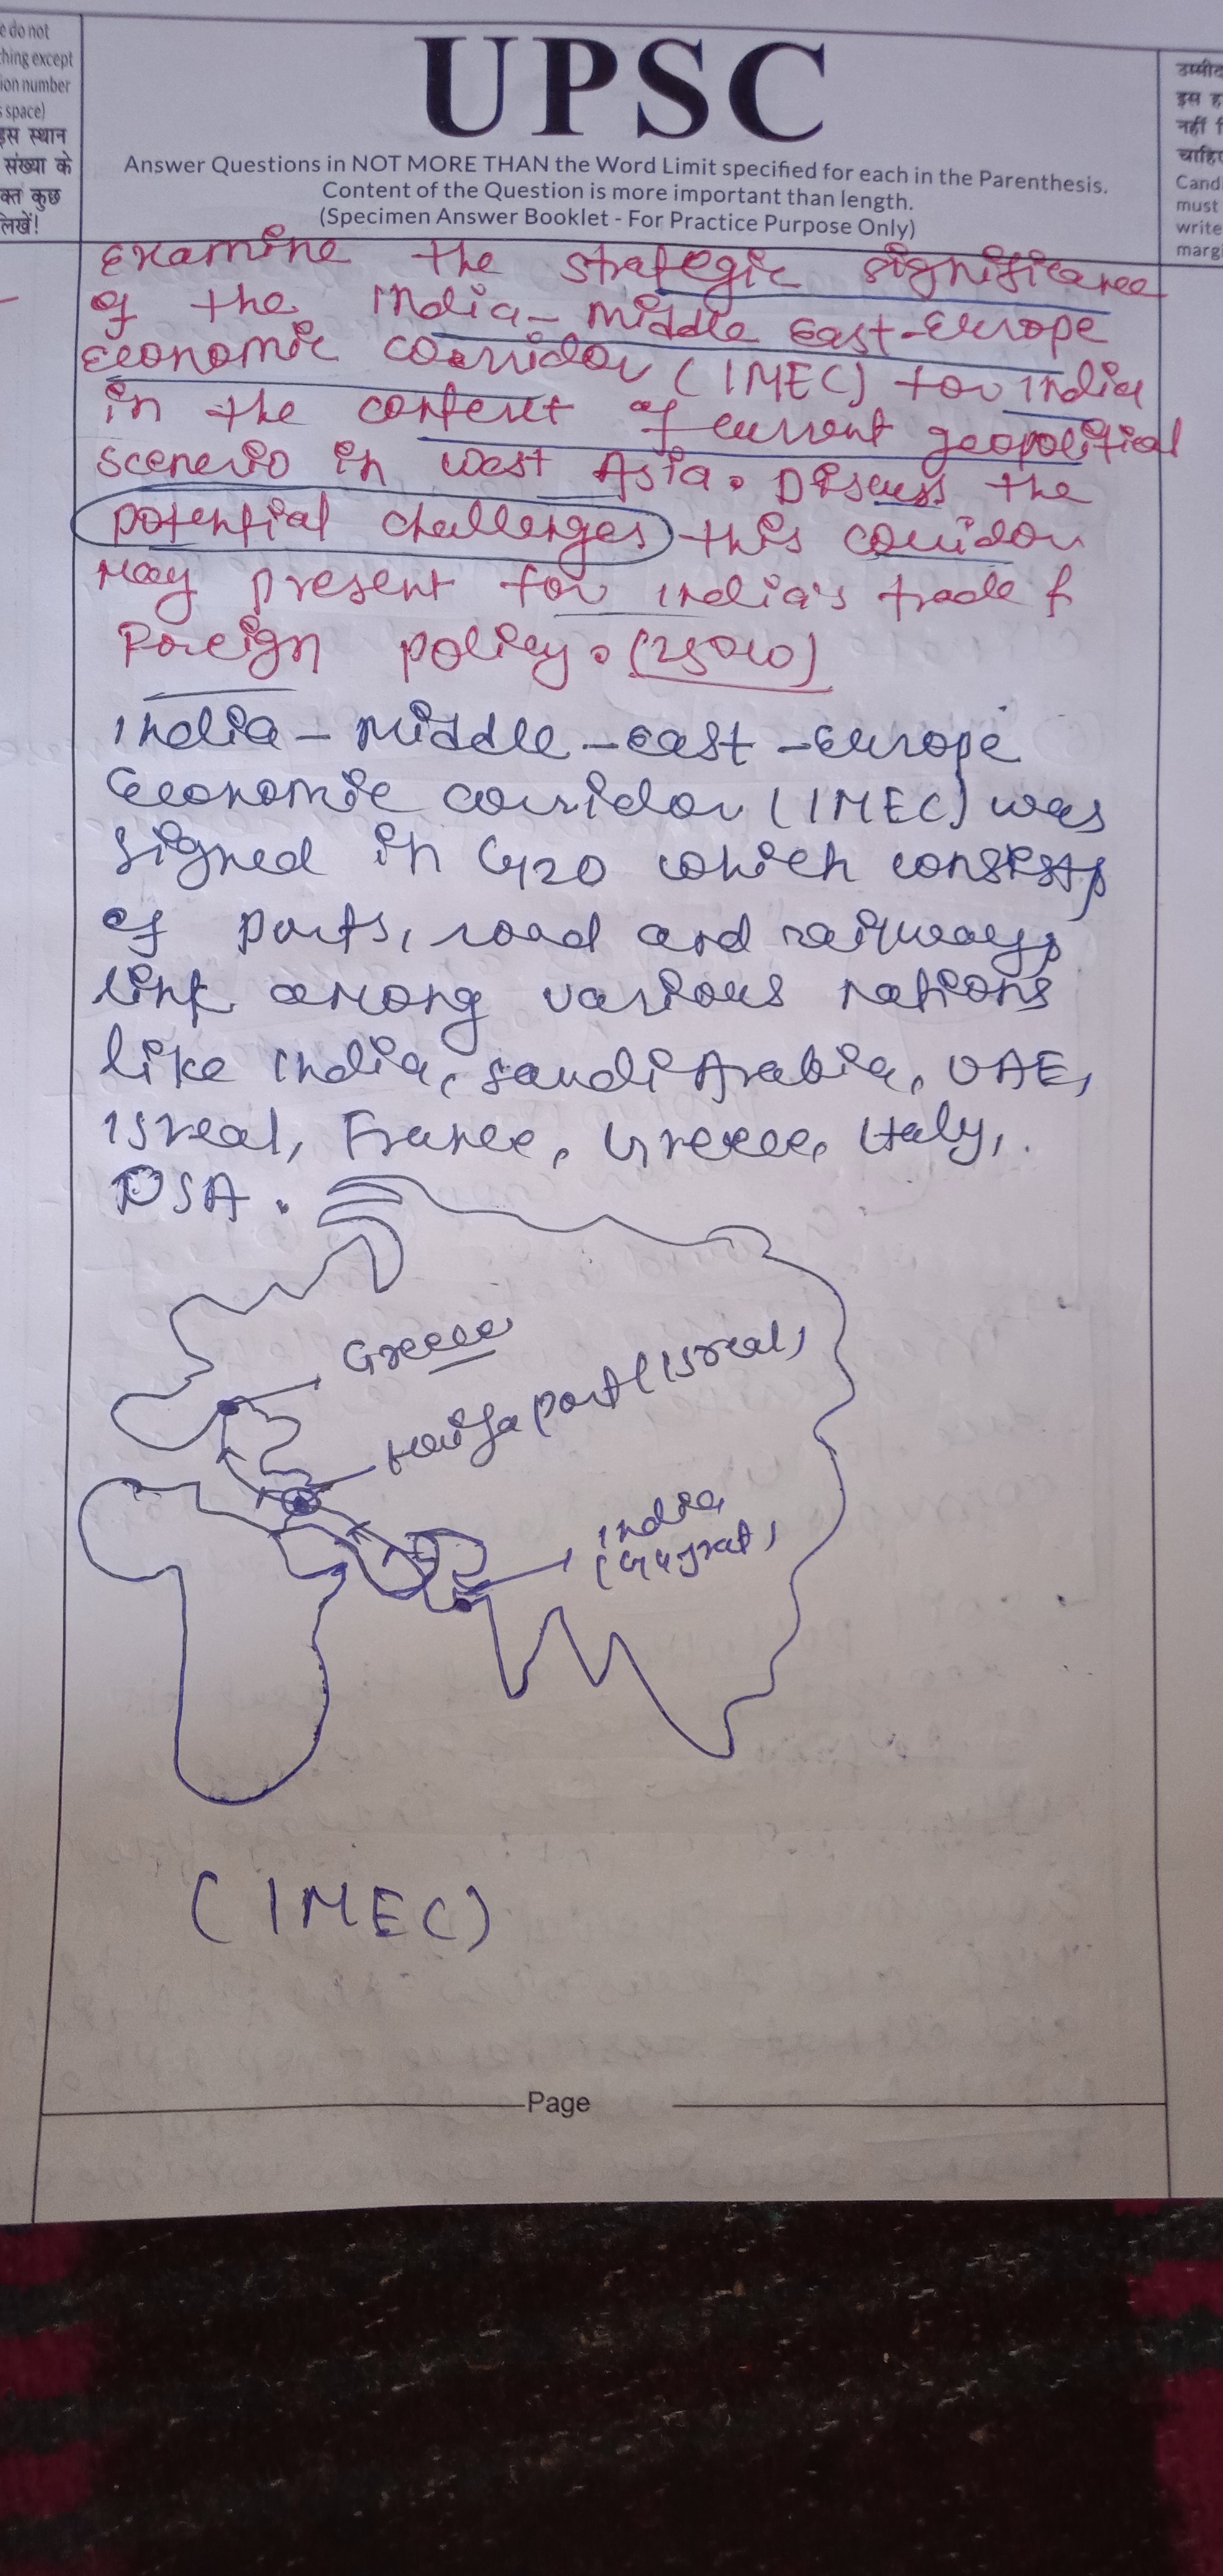 e do not
hing except
ion number
s space)
इस स्थान
संख्या के
क्त कुछ
लिखें!
UPSC
Answer Questions in NOT MORE THAN the Word Limit specified for each in the Parenthesis.
Content of the Question is more important than length.
(Specimen Answer Booklet - For Practice Purpose Only)
उम्मीद
इस ह
नहीं f
चाहिए
Cand
must
write
marg
Examine the strategic significance
of the India-Middle East-Europe
Economic corridor (IMEC) for India
in the context of current geopolitical
scenerio in West Asia. Discuss the
potential challenges this corridor
may present for India's trade &
Foreign policy.
India-Middle-East-Europe
Economic corridor (IMEC) was
signed in G20 which consists
of ports, road and railways
link among various nations
like India, Saudi Arabia, UAE,
Isreal, France, Greece, Italy,
USA.
Greece
Haifa port (Isreal)
India
(Gujrat)
(IMEC)
Page